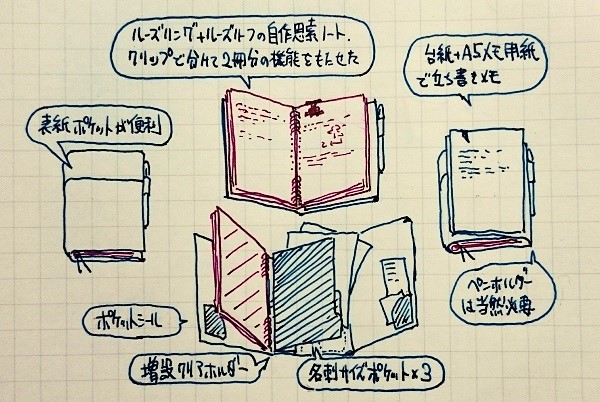 ルーズリング+ルーズリーフの自作思索ノート.
クリップで分けて2冊分の機能をもたせた
台紙+A5メモ用紙
で立ち書きメモ
表紙ポケットが便利
ペンホルダー
は当然必要
ポケットシール
増設クリアホルダー
名刺サイズポケット×3